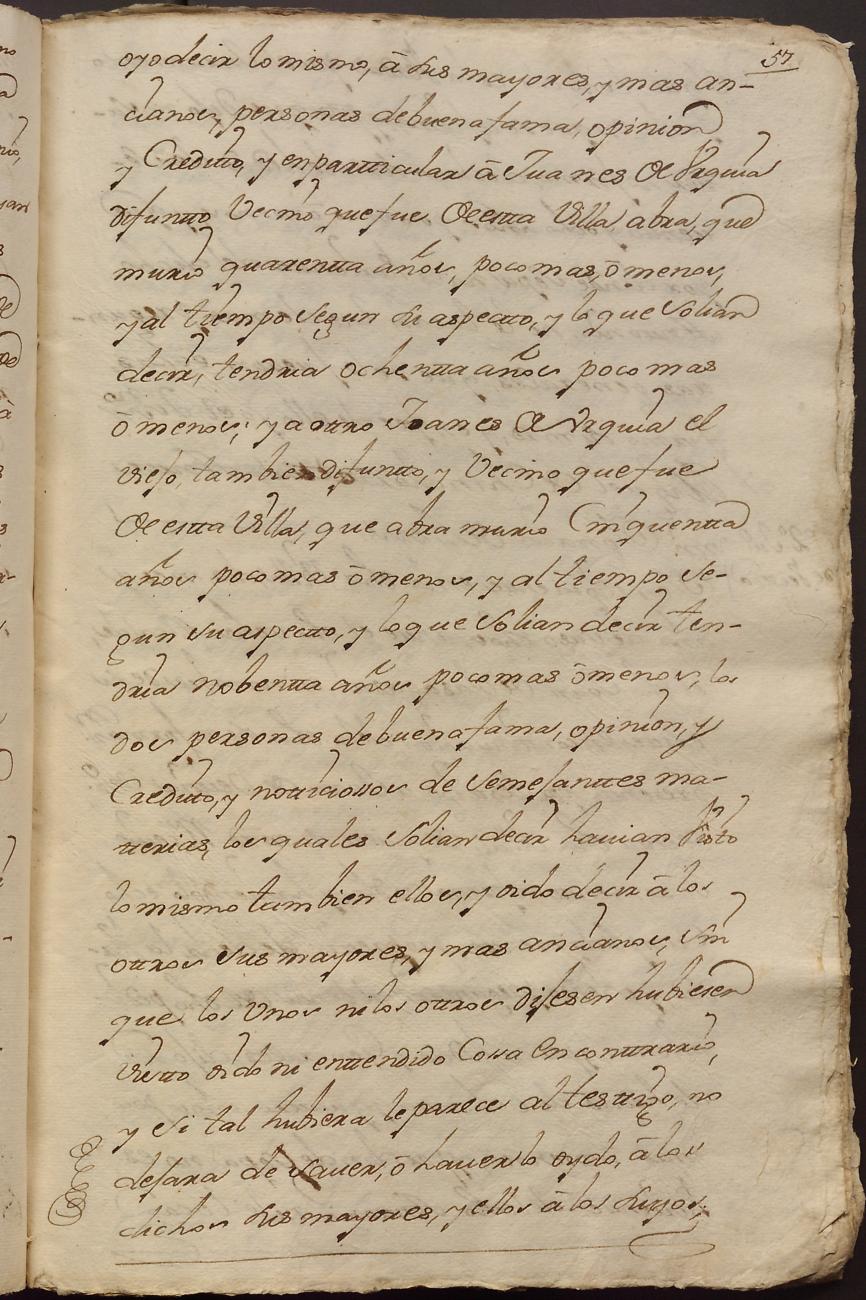 57
oyo decir lo mismo, â sus mayores, y mas an-
cianos, personas de buena fama, opinion
y Creditto, y en partticular â Juanes de Vrquia
difuntto Vecino que fue de estta Villa abra, que
murio quarentta años, poco mas, ô menos,
y al tiempo segun su aspectto, y lo que solian
decir, tendria ochentta años poco mas
ô menos; y a ottro Joanes de Vrquia el
viejo, tambien difuntto, y Vecino que fue
de estta Villa, que abra murio Cinquentta
años poco mas ô menos, y al tiempo se-
gun su aspectto, y lo que solian decir ten-
dria nobentta años poco mas ô menos, los
dos personas de buena fama, opinion, y
Creditto, y notticiosos de semejanttes ma-
tterias, los quales solian decir havian visto
lo mismo tambien ellos, y oido decir â los
ottros sus mayores, y mas ancianos, sin
que los Vnos ni los ottros dijesen hubiesen
vistto oido ni enttendido Cossa en conttrario,
y si tal hubiera le parece al testtigo, no
dejara de saver, ô haverlo oydo, â los
dichos sus mayores, y ellos â los suyos;